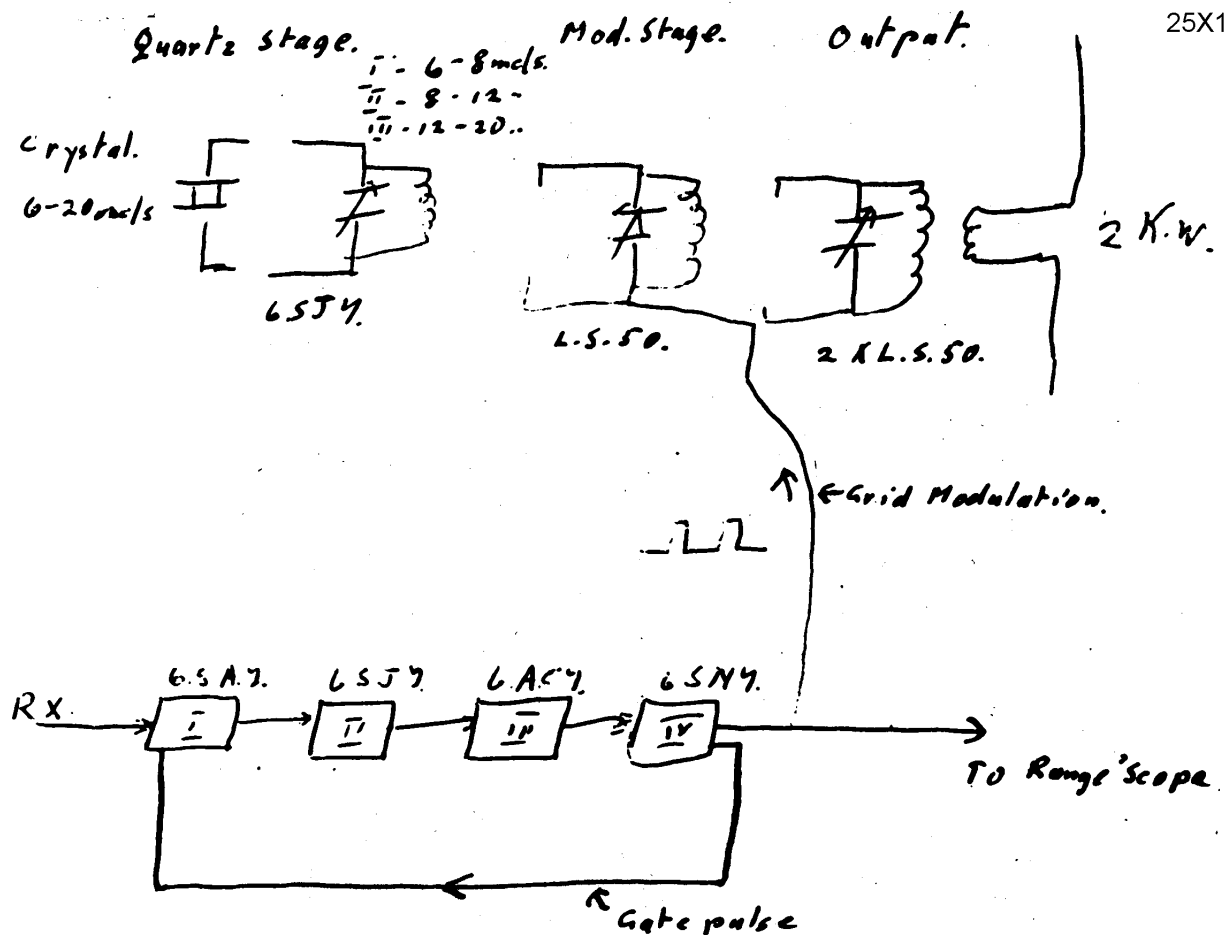 25X1
Quartz Stage.
Mod. Stage.
Output.
I - 6 - 8 mc/s.
II - 8 - 12 -
III - 12 - 20..
Crystal.
6-20 mc/s
2 K.W.
6SJ7.
L.S.50.
2 X L.S.50.
←Grid Modulation.
6.S A.7.
6SJ7.
6.AC7.
6SN7.
RX
I
II
III
IV
To Range 'Scope
Gate pulse